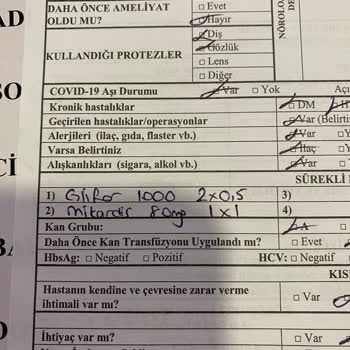 DAHA ÖNCE AMELİYAT □ Evet
OLDU MU? Hayır
KULLANDIĞI PROTEZLER Diş
Gözlük
□ Lens
□ Diğer
COVID-19 Aşı Durumu Var □ Yok
Kronik hastalıklar DM
Geçirilen hastalıklar/operasyonlar Var (Belirti
Alerjileri (ilaç, gıda, flaster vb.) Var
Varsa Belirtiniz İlaç
Alışkanlıkları (sigara, alkol vb.) Var
SÜREKLİ
1) Glifor 1000 2x0,5 3)
2) 80mg 1x1 4)
Kan Grubu: A
Daha Önce Kan Transfüzyonu Uygulandı mı? □ Evet
HbsAg: □ Negatif □ Pozitif HCV: □ Negatif
KIS
Hastanın kendine ve çevresine zarar verme
ihtimali var mı? □ Var
İhtiyaç var mı? □ Var